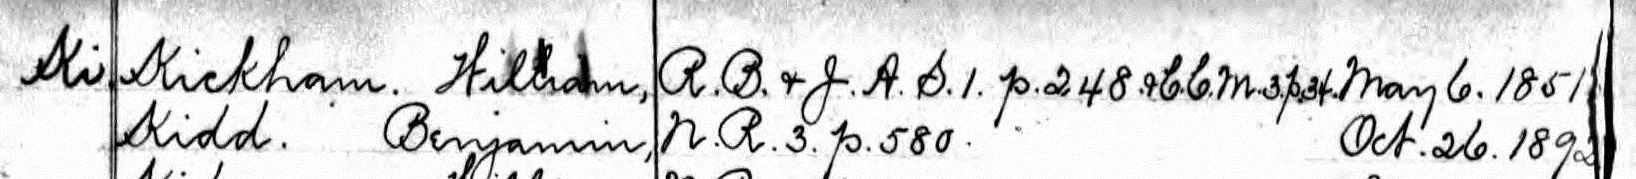 Ki. Kickham. William, R.B. & J. A. S. 1. p. 248. & C.C.M. 3. p. 34. May 6. 1851
Kidd. Benjamin, N. R. 3. p. 580. Oct. 26. 1892